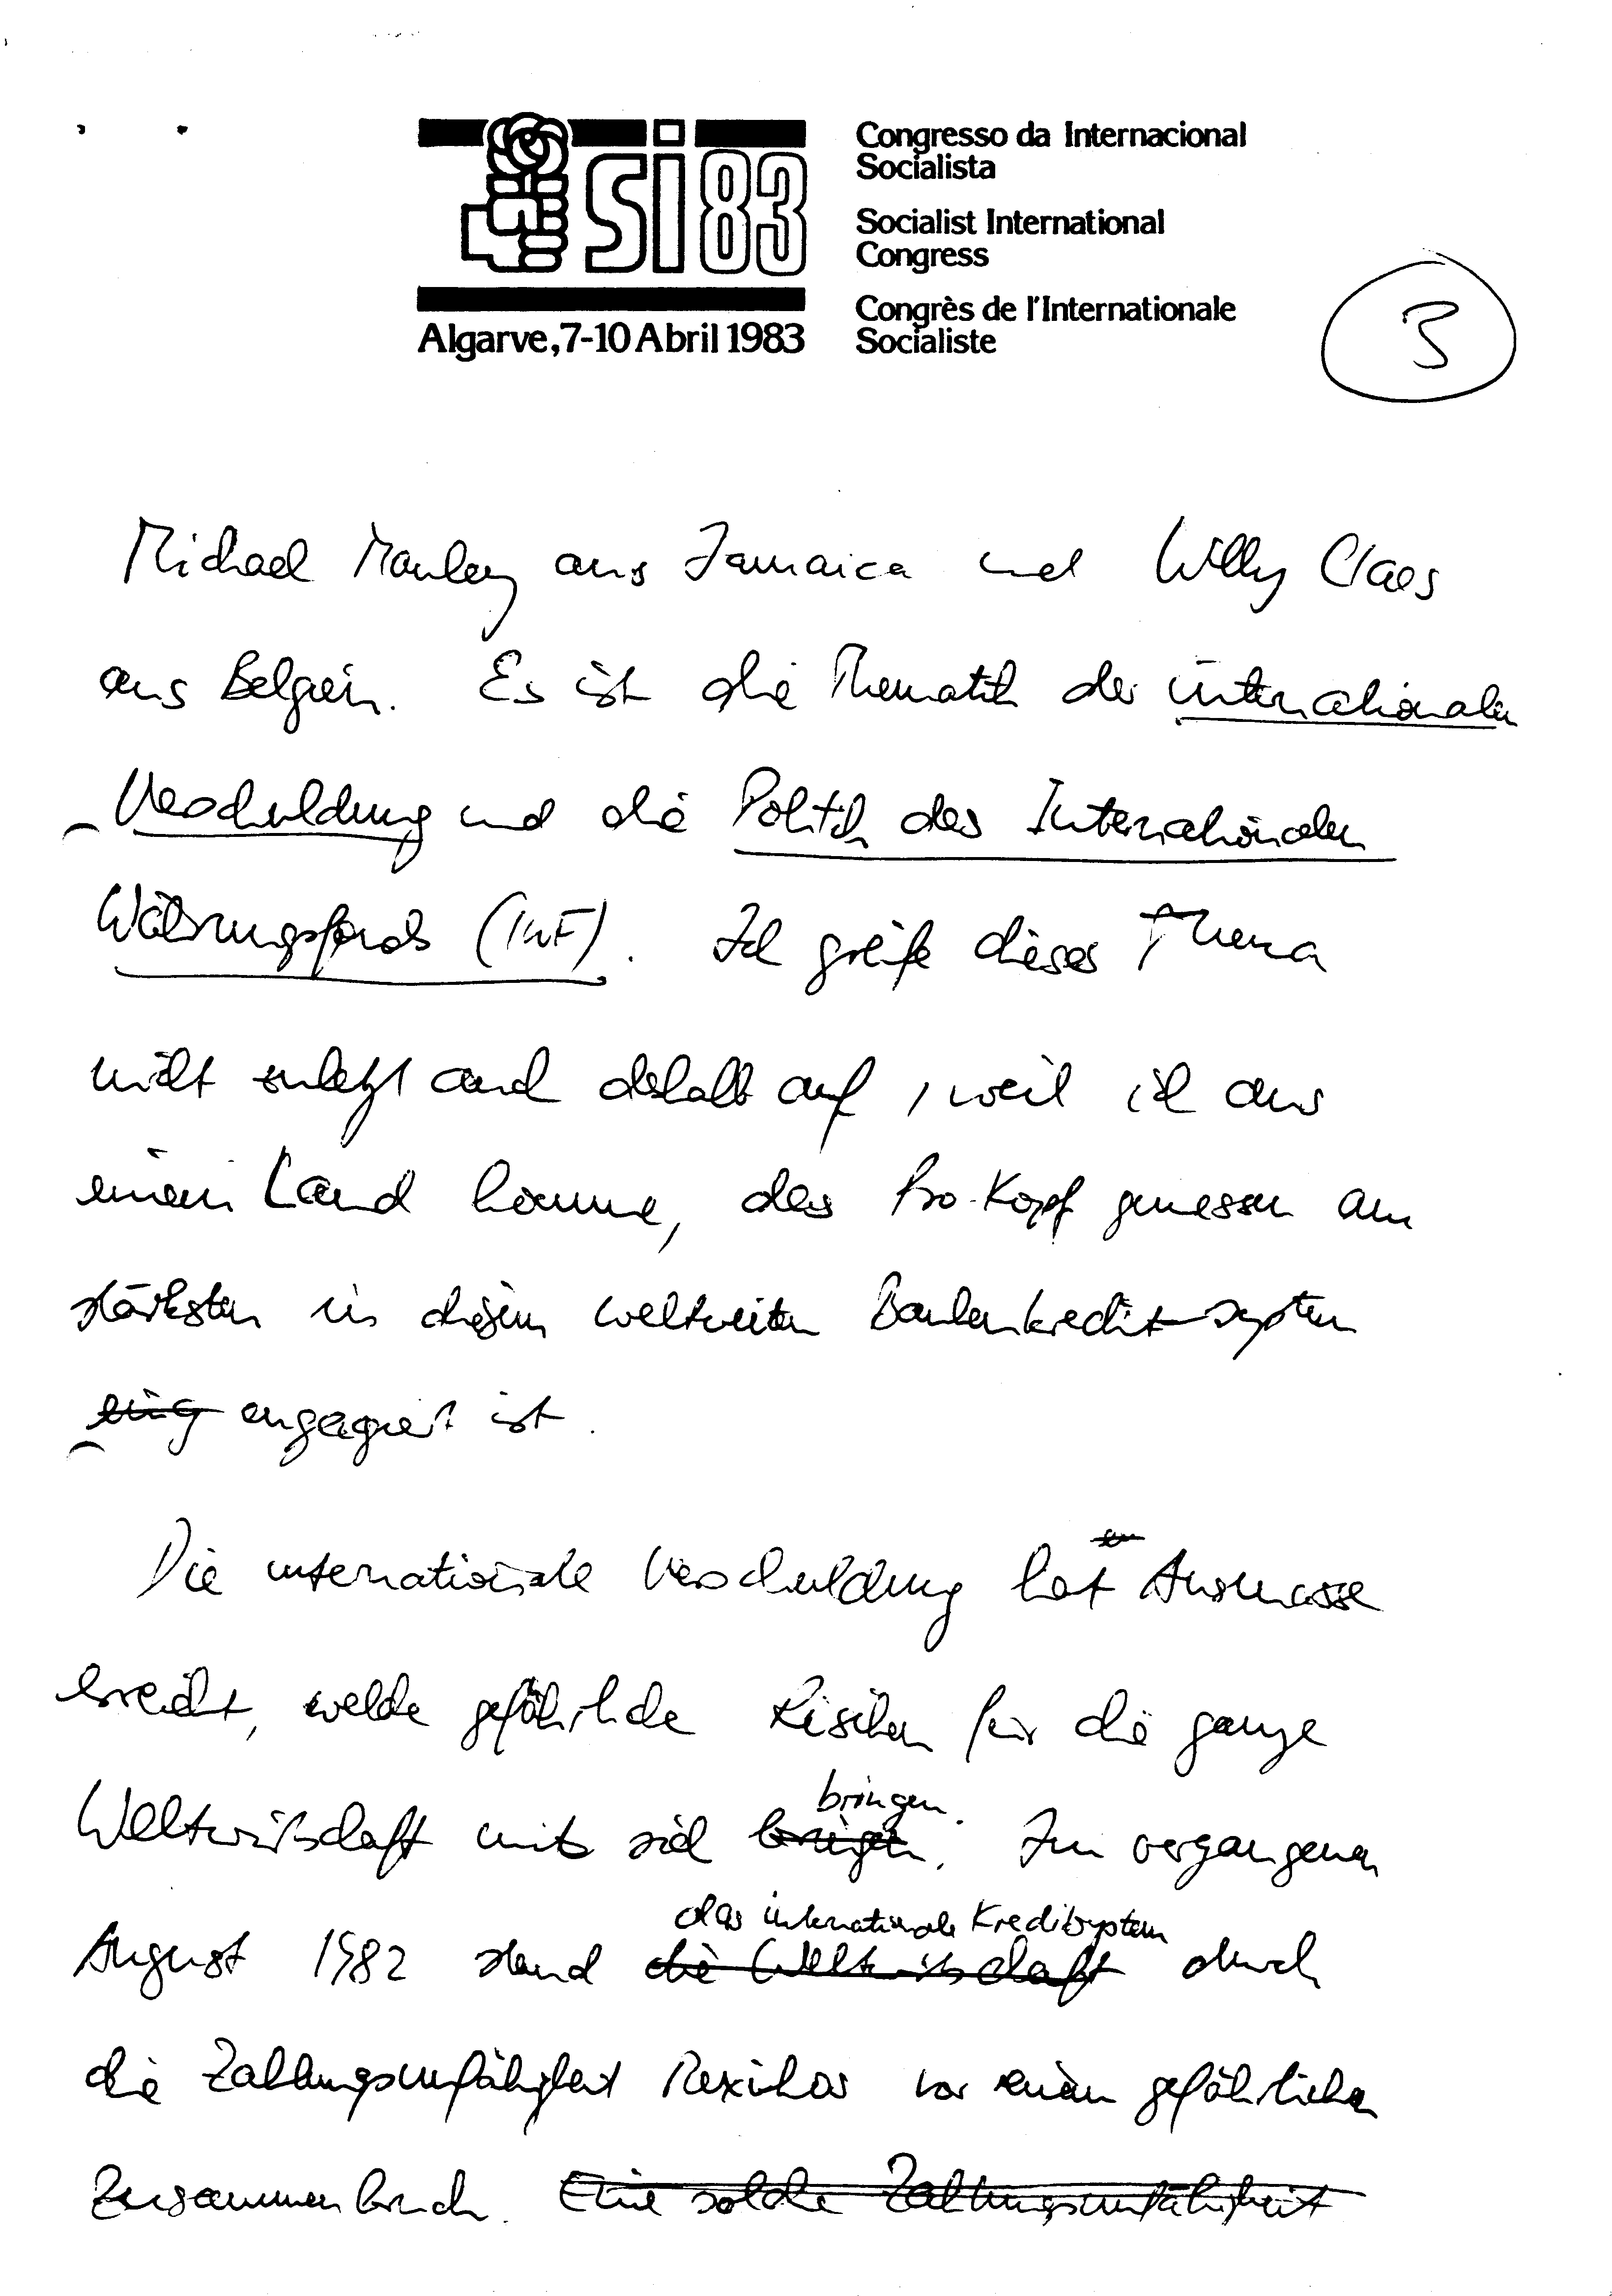 SI 83
Algarve, 7-10 Abril 1983
Congresso da Internacional
Socialista
Socialist International
Congress
Congrès de l'Internationale
Socialiste
3
Michael Manley aus Jamaica und Willy Claes
aus Belgien. Es ist die Thematik der internationalen
Verschuldung und die Politik des Internationalen
Währungsfonds (IWF). Ich greife dieses Thema
nicht zuletzt auch deshalb auf, weil ich aus
einem Land komme, das Pro-Kopf gemessen am
stärksten in diesem weltweiten Bankenkredit-system
eing engagiert ist.
Die internationale Verschuldung hat Ausmasse
erreicht, welche gefährliche Risiken für die ganze
bringen.
Weltwirtschaft mit sich bringen. Im vergangenen
das internationale Kreditsystem
August 1982 stand die Weltwirtschaft durch
die Zahlungsunfähigkeit Mexikos vor einem gefährlichen
Zusammenbruch. Eine solche Zahlungsunfähigkeit